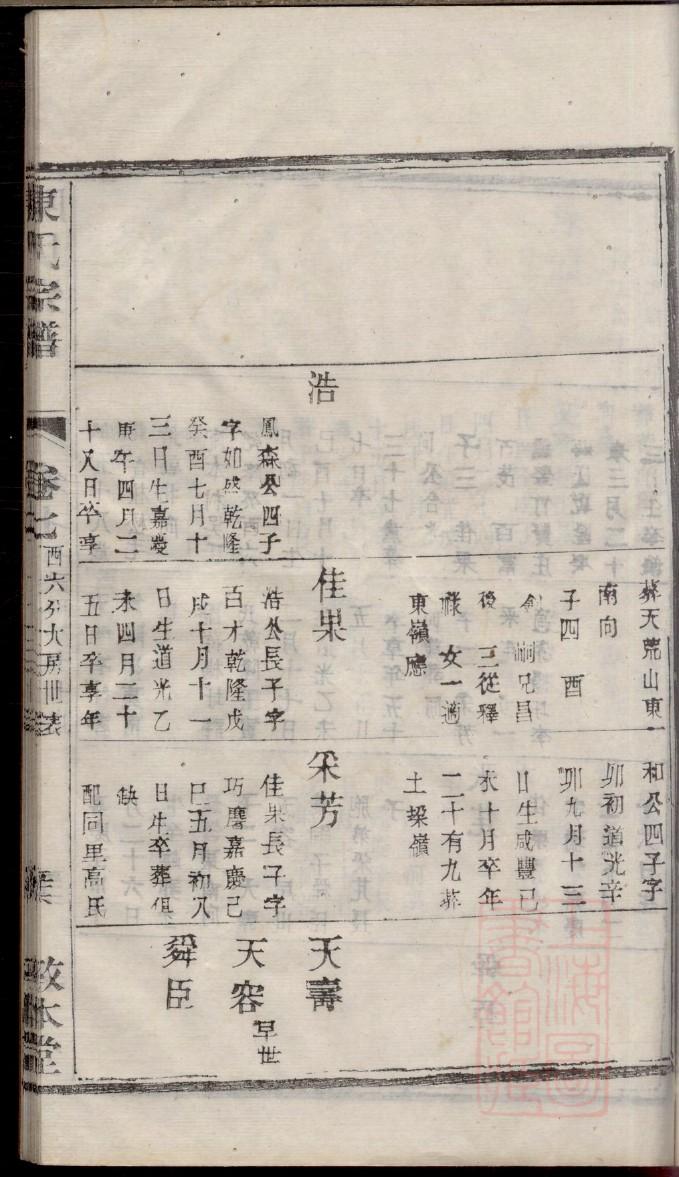 浩
鳳森公四子
字如盛乾隆
癸酉七月十
三日生嘉慶
庚午四月二
十八日卒享
葬天荒山東
南向
子四 酉
劍 嗣兄昌
後 三從釋
祿 女一適
東嶺應
佳果
浩公長子字
百才乾隆戊
戌十月十一
日生道光乙
未四月二十
五日卒享年
和公四子字
卯初道光辛
卯九月十三
日生咸豐己
未十月卒年
二十有九葬
土垛嶺
采芳
佳果長子字
巧麿嘉慶己
巳五月初八
日生卒葬俱
缺
配同里高氏
天壽
天容 早世
舜臣
陳氏宗譜
卷之
酉六分大房世表
敦本堂
上海圖書館藏